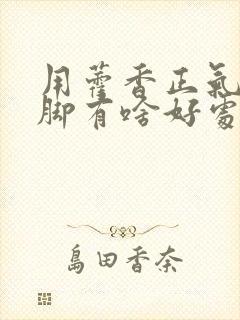 用藿香正氣
脚有啥好處
島田香奈